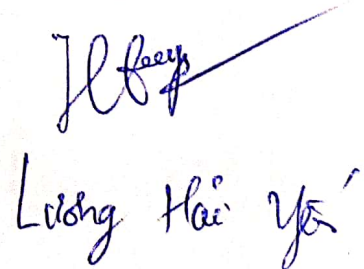 Lương Hải Yến